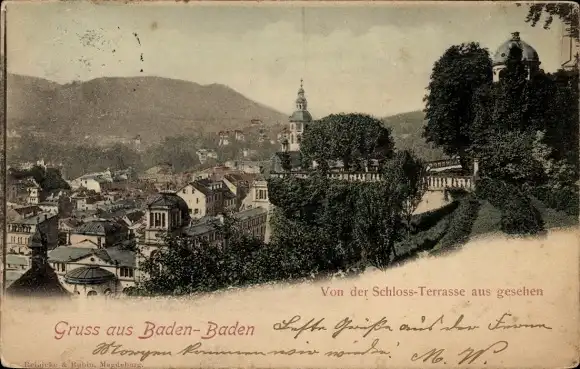 Von der Schloss-Terrasse aus gesehen
Gruss aus Baden-Baden
Beste Grüße aus der Ferne
Morgen kommen wir wieder. M. W.
Reinicke & Rubin, Magdeburg.